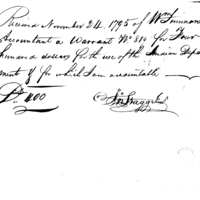 Received November 24. 1795 of Wm Simmons
Accountant a Warrant No 810 for Four
hundred dollars for the use of the Indian Depart
ment & for which I am accountable
400